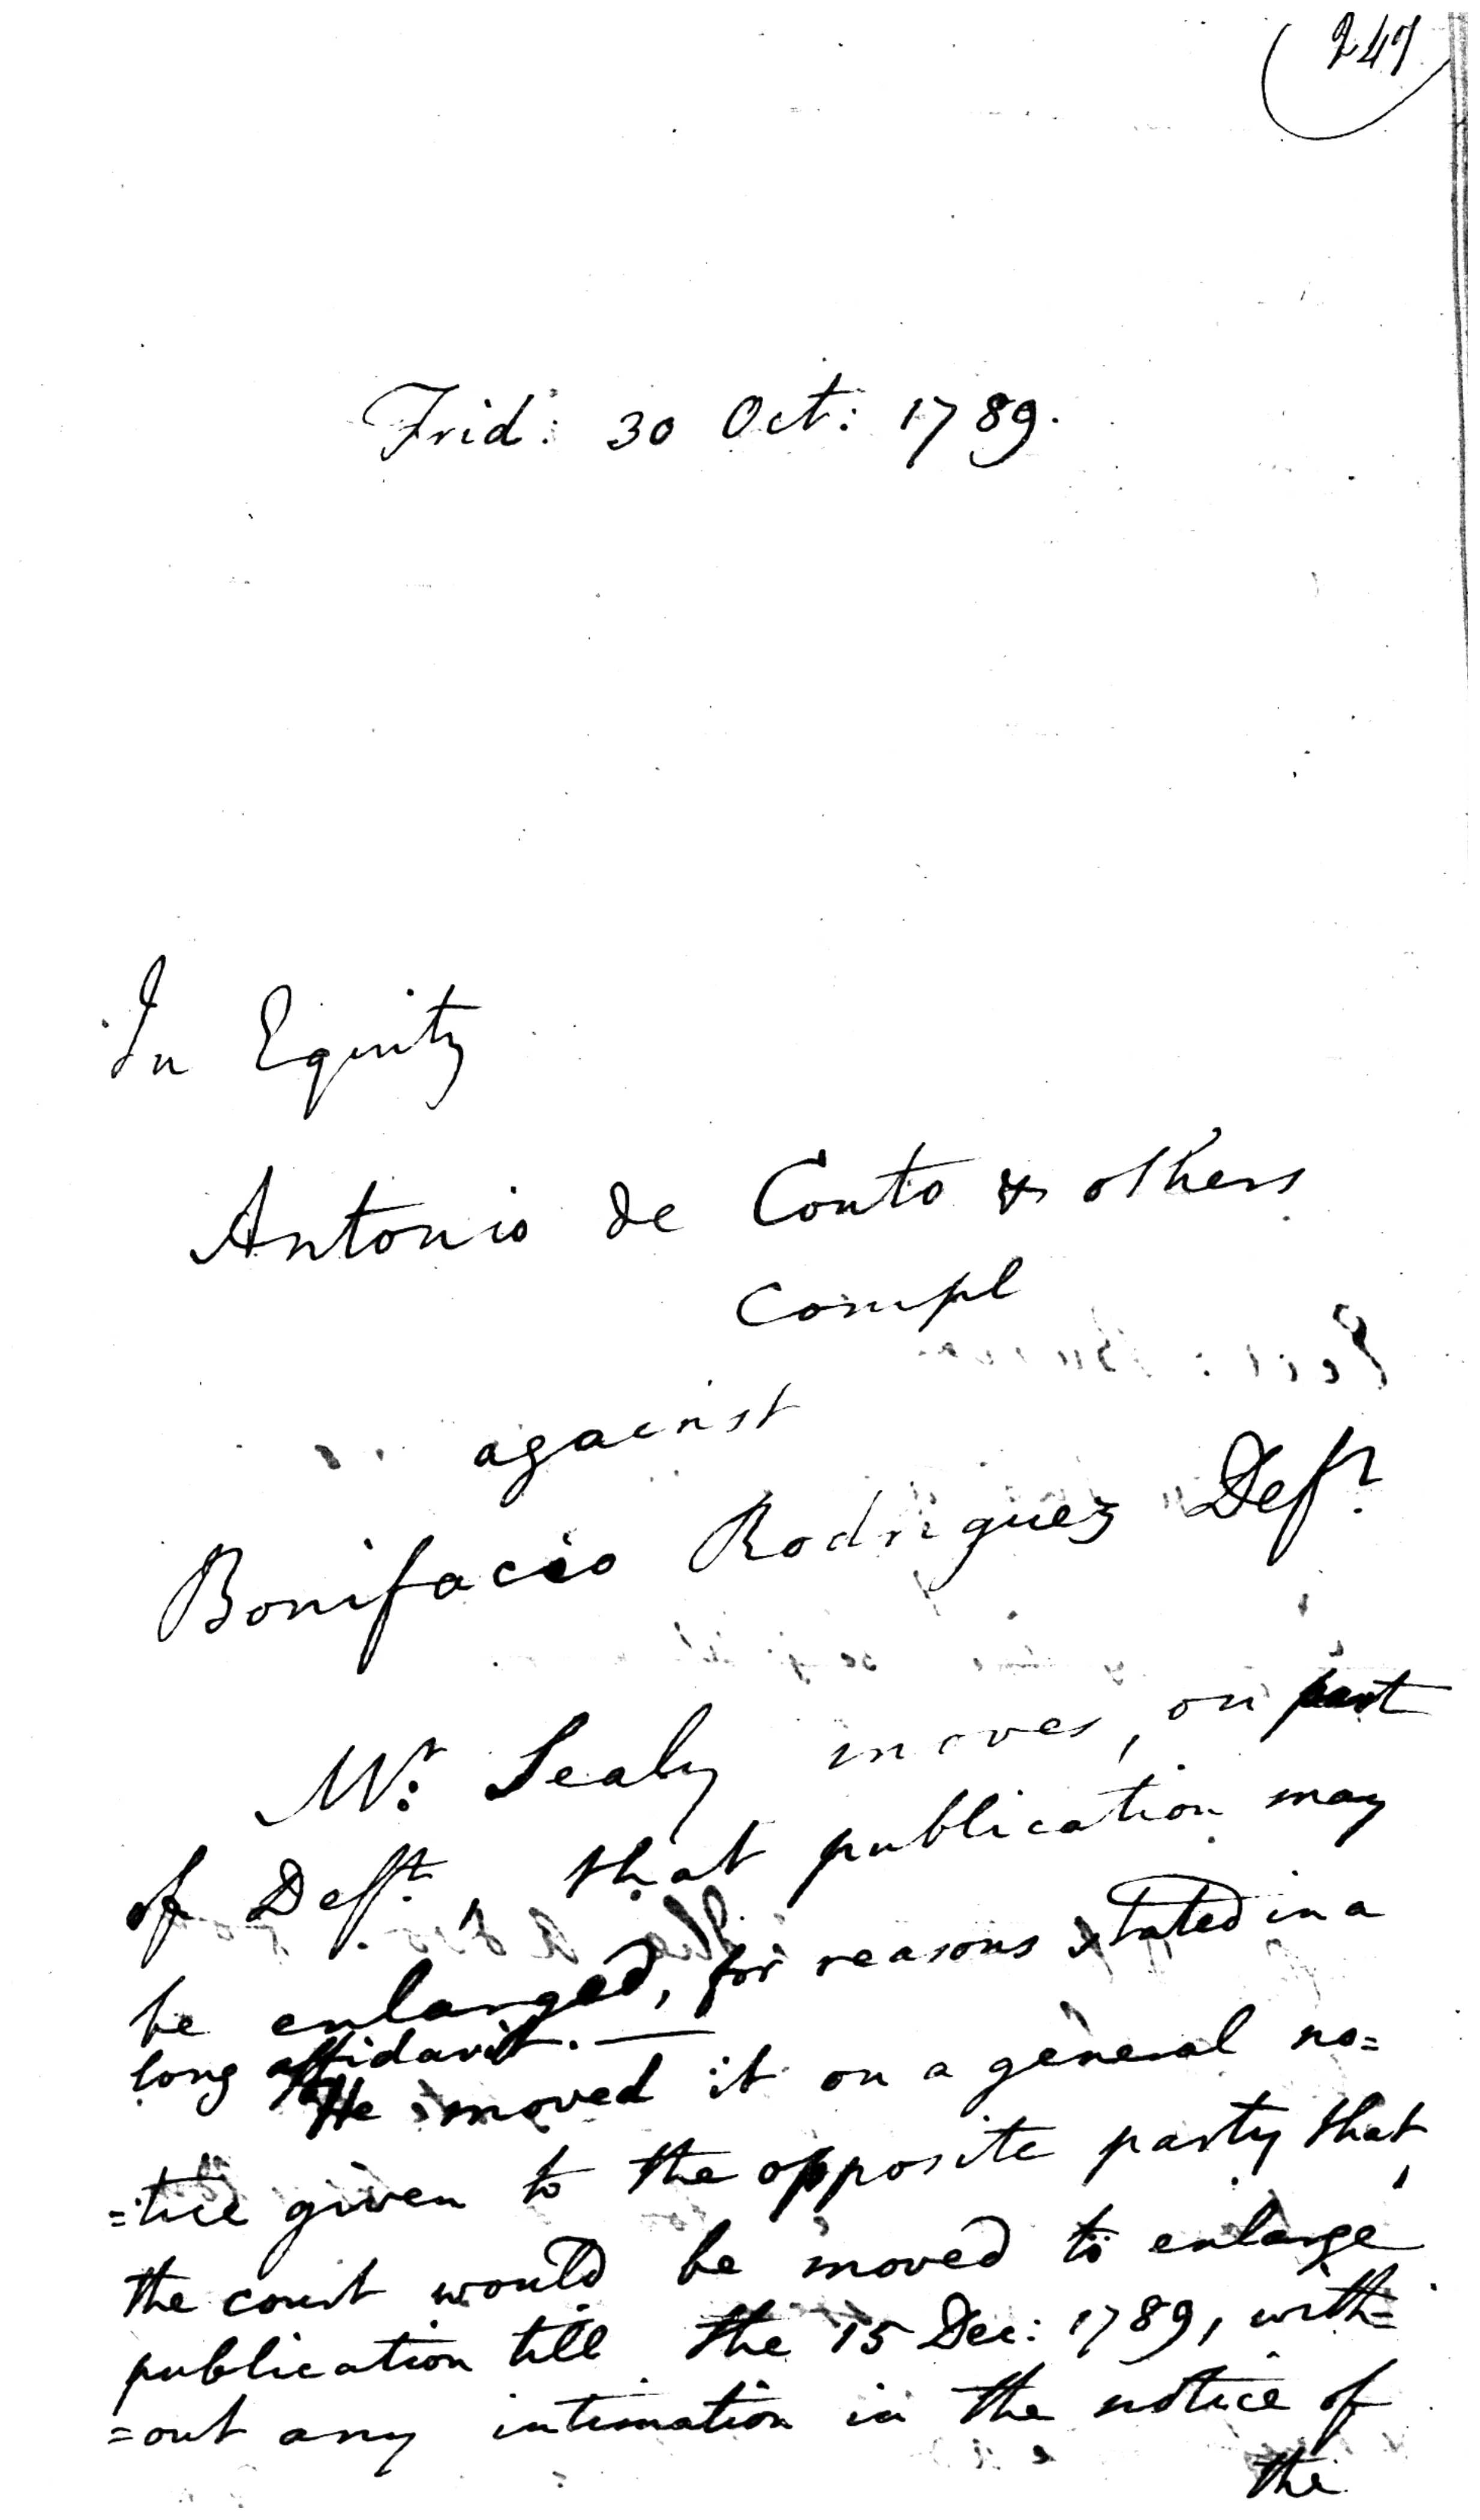 247
Frid: 30 Oct: 1789.
In Equity
Antonio de Conto & others
Compl
against
Bonifacio Rodriguez Deft.
Mr. Sealy moves, on part
of Deft. that publication may
be enlarged, for reasons stated in a
long affidavit. —
He moved it on a general no=
=tice given to the opposite party that,
the court would be moved to enlarge
publication till the 15 Dec: 1789, with=
=out any intimation in the notice of
the